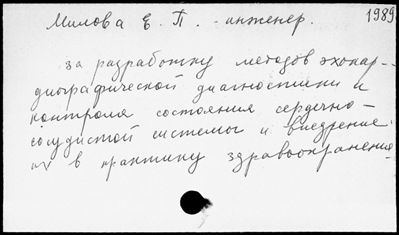 Милова Е. П. - инженер. 1989
за разработку методов эхокар-
диографической диагностики и
контроля состояния сердечно-
сосудистой системы и внедрение
их в практику здравоохранения